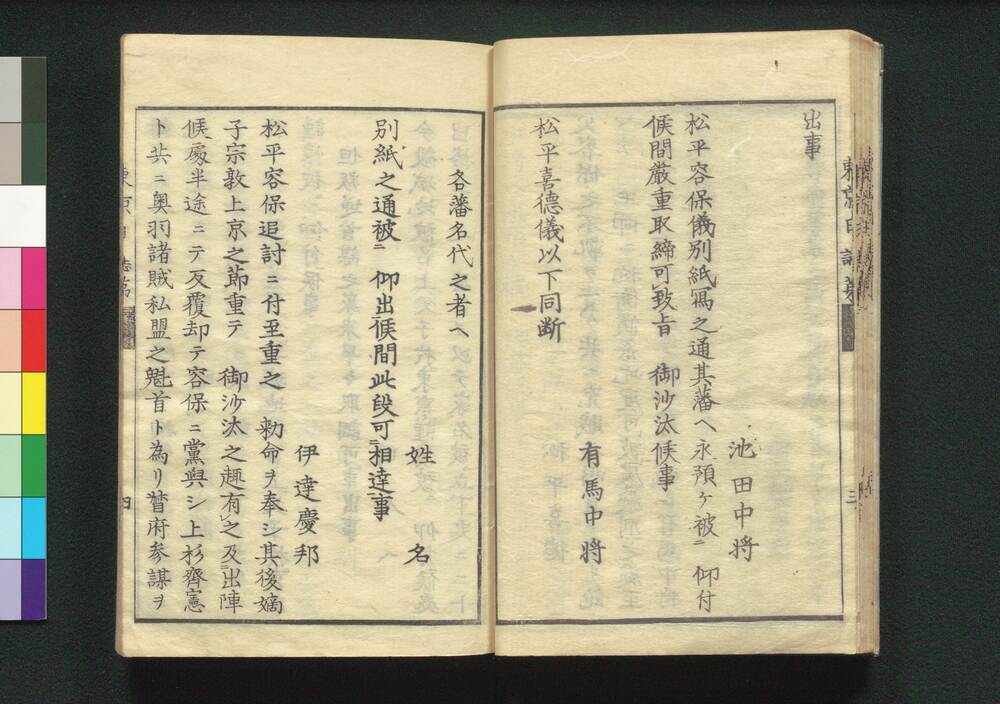 出事
池田中将
松平容保儀別紙寫之通其藩ヘ永預ケ被ニ 仰付
候間嚴重取締可致旨 御沙汰候事
有馬中将
松平喜德儀以下同断
三
各藩名代之者ヘ
姓名
別紙之通被ニ 仰出候間此段可相達事
伊達慶邦
松平容保追討ニ付至重之 勅命ヲ奉シ其後嫡
子宗敦上京之節重テ 御沙汰之趣有之及出陣
候處半途ニテ反覆却テ容保ニ黨與シ上杉齊憲
ト共ニ奥羽諸賊私盟之魁首ト為リ督府参謀ヲ
四